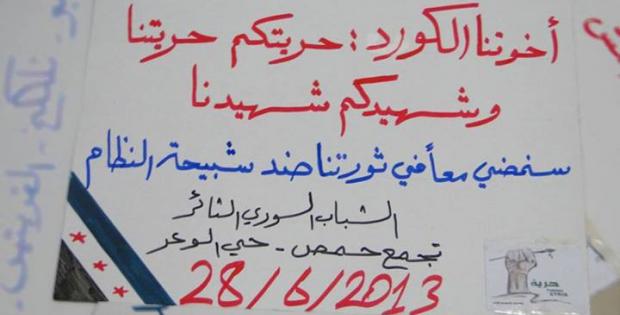 أخوتنا الكورد : حريتكم حريتنا
وشهيدكم شهيدنا
سنمضي معاً في ثورتنا ضد شبيحة النظام
الشباب السوري الثائر
تجمع حمص - حي الوعر
28/6/2013
حرية